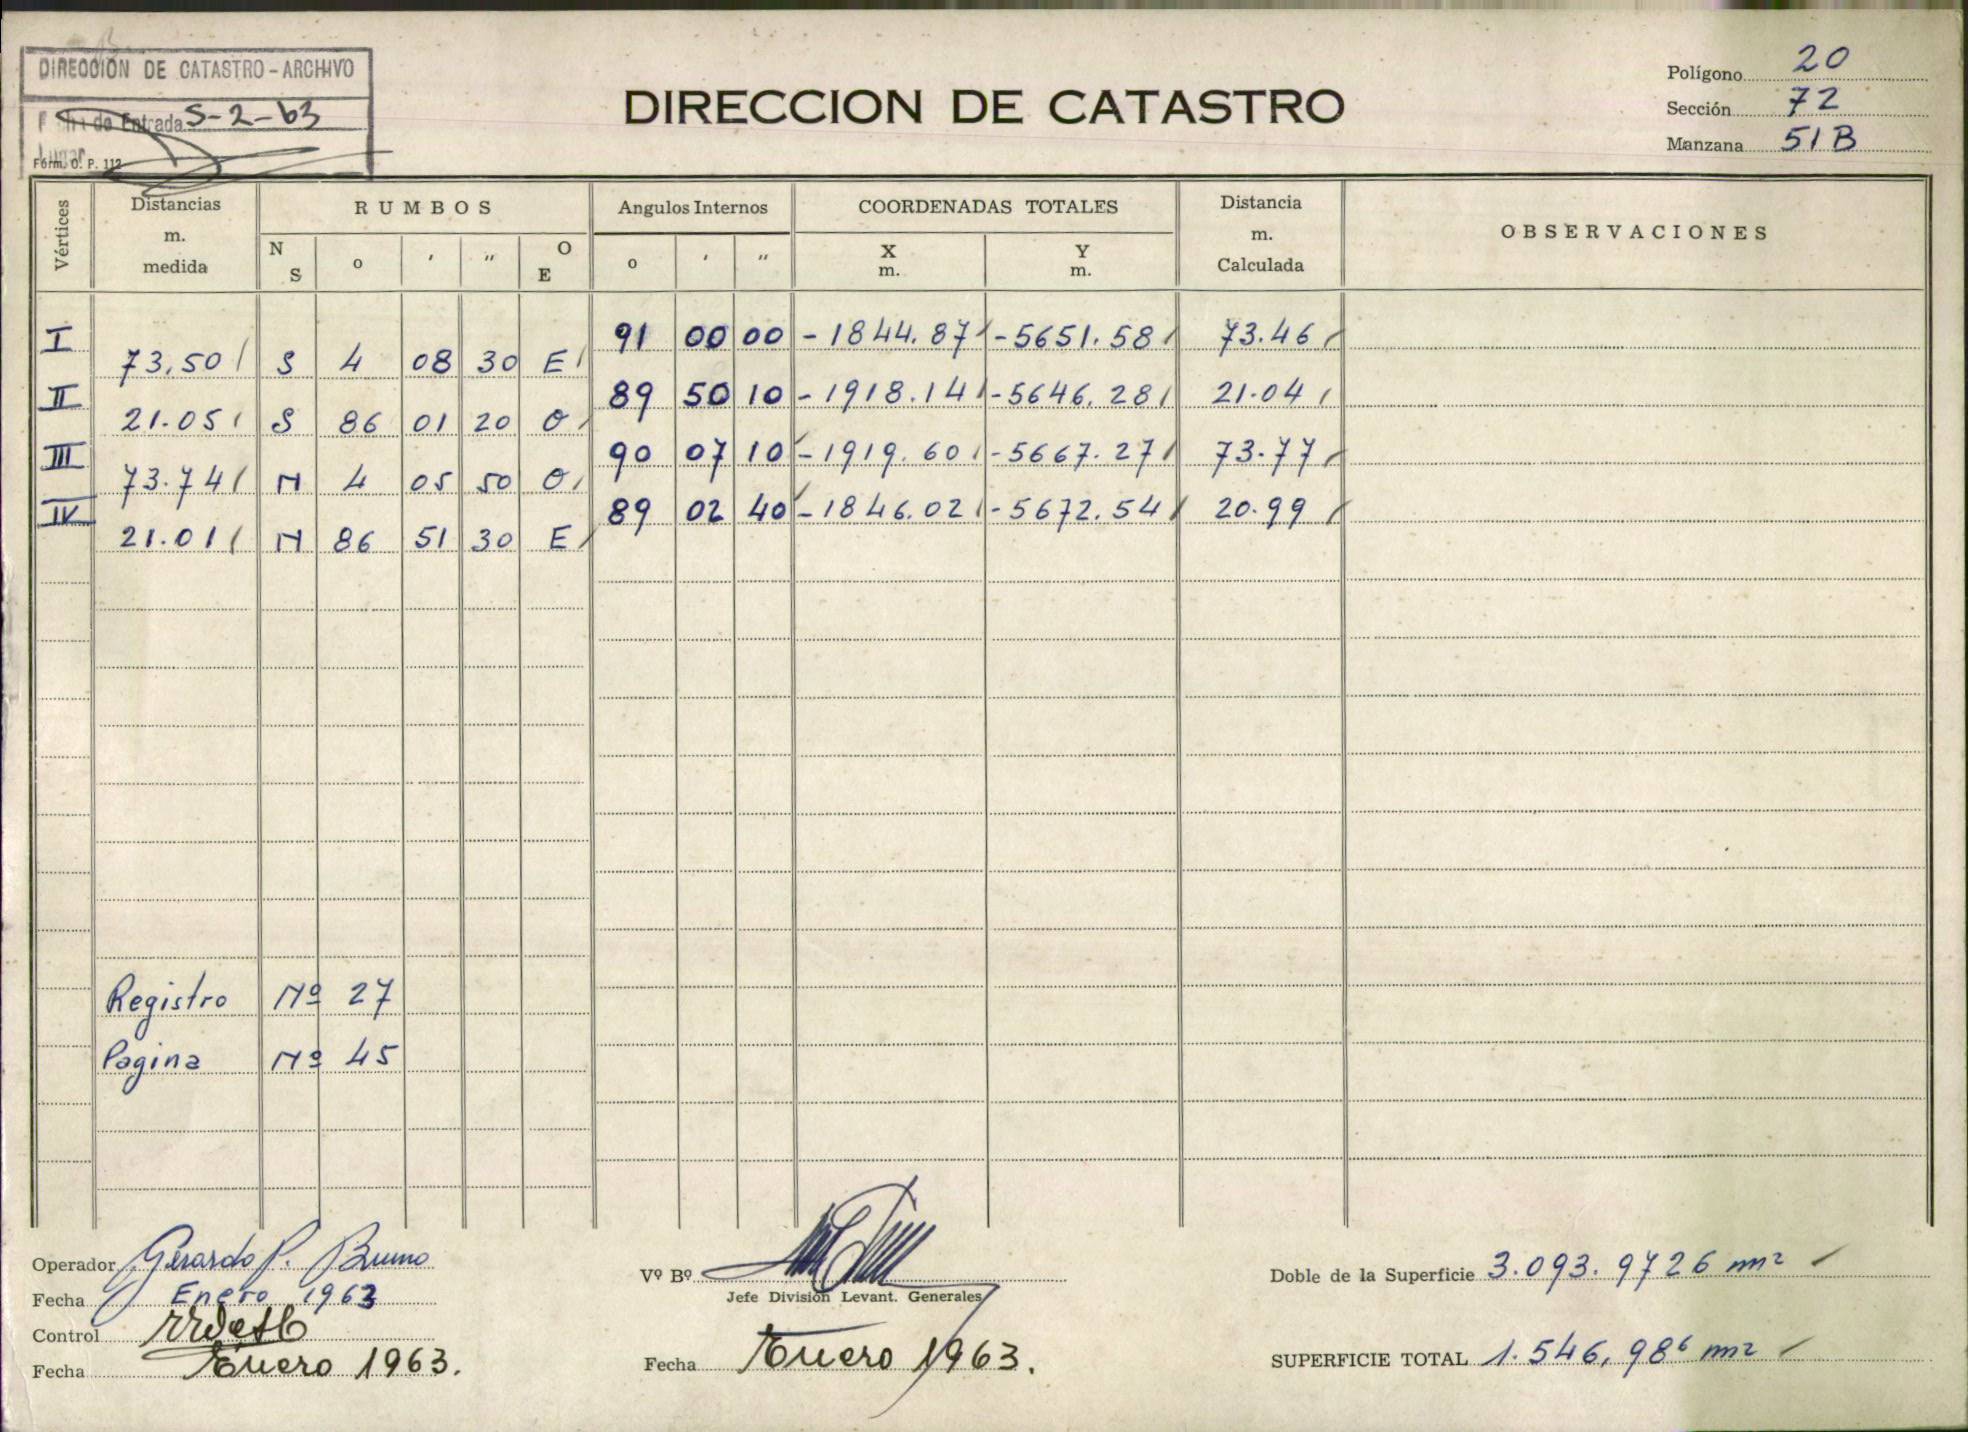 DIRECCION DE CATASTRO - ARCHIVO
Fecha de Entrada 5-2-63
Lugar
Form. O. P. 112
DIRECCION DE CATASTRO
Polígono 20
Sección 72
Manzana 51B
Vértices
Distancias m. medida
RUMBOS
N S o ' " O E
Angulos Internos
o ' "
COORDENADAS TOTALES
X m. Y m.
Distancia m. Calculada
OBSERVACIONES
I 91 00 00 -1844.87 -5651.58 73.46
73,50 S 4 08 30 E
II 89 50 10 -1918.14 -5646.28 21.04
21.05 S 86 01 20 O
III 90 07 10 -1919.60 -5667.27 73.77
73.74 N 4 05 50 O
IV 89 02 40 -1846.02 -5672.54 20.99
21.01 N 86 51 30 E
Registro Nº 27
Pagina Nº 45
Operador Gerardo P. Bruno
Fecha Enero 1963
Control
Fecha Enero 1963.
Vº Bº
Jefe División Levant. Generales
Fecha Enero 1963.
Doble de la Superficie 3.093.9726 m²
SUPERFICIE TOTAL 1.546,986 m²